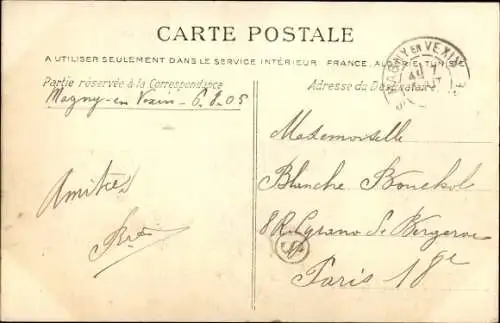 CARTE POSTALE
A UTILISER SEULEMENT DANS LE SERVICE INTÉRIEUR FRANCE, ALGÉRIE, TUNISIE
Partie réservée à la Correspondance
Adresse du Destinataire
MAGNY EN VEXIN
Magny-en Vexin - 6.8.05
Amitiés
Mademoiselle
Blanche
8 R.
Paris 18e